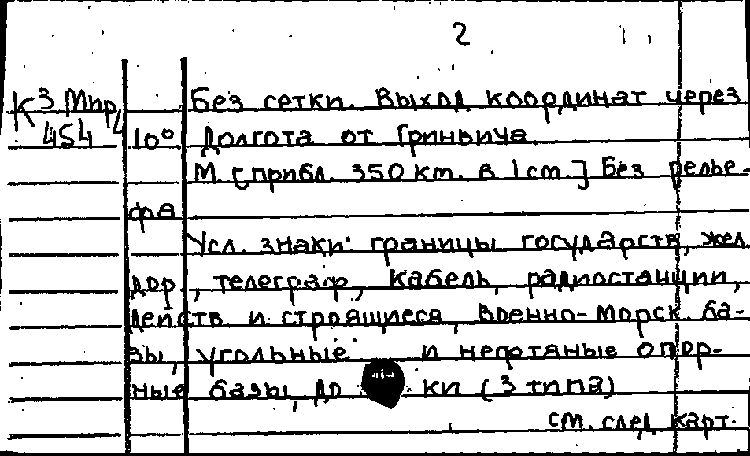 2
К 3 Мир/4 Без сетки. Выход координат через
454 10° Долгота от Гринвича.
М. [прибл. 350 km. в 1 cm.] Без релье-
фа
Усл. знаки: границы государств, жел.
дор., телеграф, кабель, радиостанции,
действ. и строящиеся, военно-морск. ба-
зы, угольные и нефтяные опор-
ные базы, до ки (3 типа)
см. след. карт.